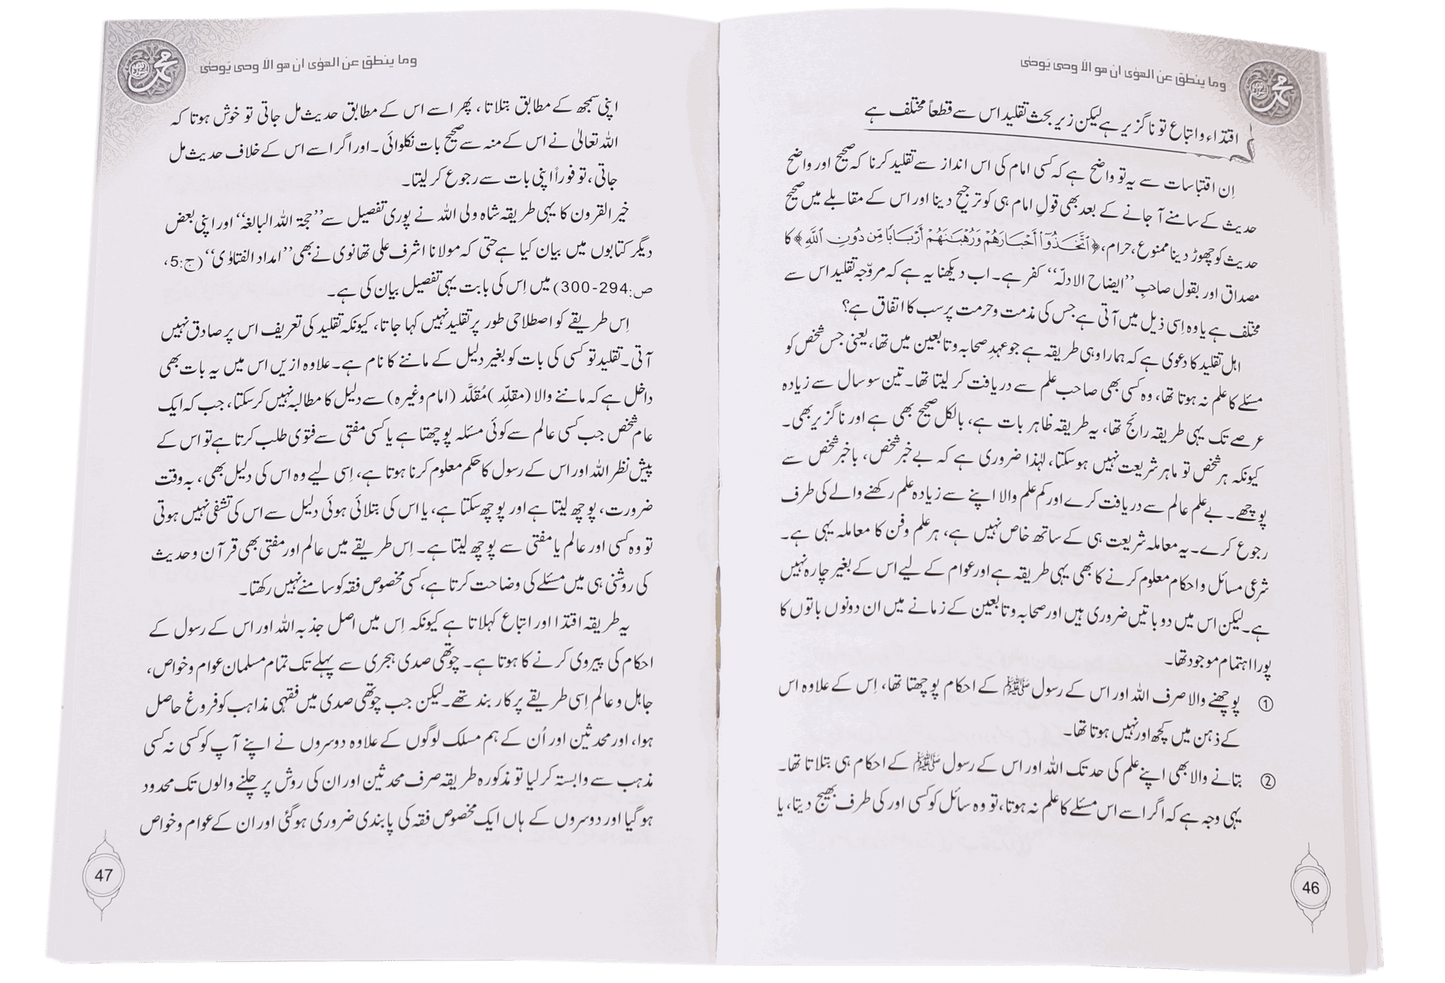 وما ينطق عن الهوٰى ان هو الا وحى يوحىٰ
اقتداء و اتباع تو ناگزیر ہے لیکن زیر بحث تقلید اس سے قطعاً مختلف ہے
اِن اقتباسات سے یہ تو واضح ہے کہ کسی امام کی اس انداز سے تقلید کرنا کہ صحیح اور واضح
حدیث کے سامنے آ جانے کے بعد بھی قولِ امام ہی کو ترجیح دینا اور اس کے مقابلے میں صحیح
حدیث کو چھوڑ دینا ممنوع، حرام، ﴿اتَّخَذُوٓا اَحْبَارَهُمْ وَرُهْبَانَهُمْ اَرْبَابًا مِّنْ دُوْنِ اللّٰهِ﴾ کا
مصداق اور بقول صاحبِ ’’ایضاح الادلہ‘‘ کفر ہے۔ اب دیکھنا یہ ہے کہ مروّجہ تقلید اس سے
مختلف ہے یا وہ اِسی ذیل میں آتی ہے جس کی مذمت و حرمت پر سب کا اتفاق ہے؟
اہل تقلید کا دعویٰ ہے کہ ہمارا وہی طریقہ ہے جو عہدِ صحابہ و تابعین میں تھا، یعنی جس شخص کو
مسئلے کا علم نہ ہوتا تھا، وہ کسی بھی صاحب علم سے دریافت کر لیتا تھا۔ تین سو سال سے زیادہ
عرصے تک یہی طریقہ رائج تھا، یہ طریقہ ظاہر بات ہے، بالکل صحیح بھی ہے اور ناگزیر بھی۔
کیونکہ ہر شخص تو ماہر شریعت نہیں ہوسکتا، لہٰذا ضروری ہے کہ بے خبر شخص، باخبر شخص سے
پوچھے۔ بے علم عالم سے دریافت کرے اور کم علم والا اپنے سے زیادہ علم رکھنے والے کی طرف
رجوع کرے۔ یہ معاملہ شریعت ہی کے ساتھ خاص نہیں ہے، ہر علم و فن کا معاملہ یہی ہے۔
شرعی مسائل و احکام معلوم کرنے کا بھی یہی طریقہ ہے اور عوام کے لیے اس کے بغیر چارہ نہیں
ہے۔ لیکن اس میں دو باتیں ضروری ہیں اور صحابہ و تابعین کے زمانے میں ان دونوں باتوں کا
پورا اہتمام موجود تھا۔
① پوچھنے والا صرف اللہ اور اس کے رسول ﷺ کے احکام پوچھتا تھا، اِس کے علاوہ اس
کے ذہن میں کچھ اور نہیں ہوتا تھا۔
② بتانے والا بھی اپنے علم کی حد تک اللہ اور اس کے رسول ﷺ کے احکام ہی بتلاتا تھا۔
یہی وجہ ہے کہ اگر اسے اس مسئلے کا علم نہ ہوتا، تو وہ سائل کو کسی اور کی طرف بھیج دیتا، یا
46
وما ينطق عن الهوٰى ان هو الا وحى يوحىٰ
اپنی سمجھ کے مطابق بتلاتا ، پھر اسے اس کے مطابق حدیث مل جاتی تو خوش ہوتا کہ
اللہ تعالیٰ نے اس کے منہ سے صحیح بات نکلوائی ۔ اور اگر اسے اس کے خلاف حدیث مل
جاتی، تو فوراً اپنی بات سے رجوع کر لیتا۔
خیر القرون کا یہی طریقہ شاہ ولی اللہ نے پوری تفصیل سے ’’حجۃ اللہ البالغہ‘‘ اور اپنی بعض
دیگر کتابوں میں بیان کیا ہے حتیٰ کہ مولانا اشرف علی تھانوی نے بھی ’’امداد الفتاویٰ‘‘ (ج:5،
ص:294-300) میں اِس کی بابت یہی تفصیل بیان کی ہے۔
اِس طریقے کو اصطلاحی طور پر تقلید نہیں کہا جاتا، کیونکہ تقلید کی تعریف اس پر صادق نہیں
آتی۔ تقلید تو کسی کی بات کو بغیر دلیل کے ماننے کا نام ہے۔ علاوہ ازیں اس میں یہ بات بھی
داخل ہے کہ ماننے والا (مقلِّد )مُقَلَّد (امام وغیرہ) سے دلیل کا مطالبہ نہیں کر سکتا، جب کہ ایک
عام شخص جب کسی عالم سے کوئی مسئلہ پوچھتا ہے یا کسی مفتی سے فتویٰ طلب کرتا ہے تو اس کے
پیش نظر اللہ اور اس کے رسول کا حکم معلوم کرنا ہوتا ہے، اِسی لیے وہ اس کی دلیل بھی، بہ وقت
ضرورت، پوچھ لیتا ہے اور پوچھ سکتا ہے، یا اس کی بتلائی ہوئی دلیل سے اس کی تشفی نہیں ہوتی
تو وہ کسی اور عالم یا مفتی سے پوچھ لیتا ہے۔ اِس طریقے میں عالم اور مفتی بھی قرآن و حدیث
کی روشنی ہی میں مسئلے کی وضاحت کرتا ہے، کسی مخصوص فقہ کو سامنے نہیں رکھتا۔
یہ طریقہ اقتدا اور اتباع کہلاتا ہے کیونکہ اِس میں اصل جذبہ اللہ اور اس کے رسول کے
احکام کی پیروی کرنے کا ہوتا ہے۔ چوتھی صدی ہجری سے پہلے تک تمام مسلمان عوام و خواص،
جاہل و عالم اِسی طریقے پر کاربند تھے۔ لیکن جب چوتھی صدی میں فقہی مذاہب کو فروغ حاصل
ہوا، اور محدثین اور اُن کے ہم مسلک لوگوں کے علاوہ دوسروں نے اپنے آپ کو کسی نہ کسی
مذہب سے وابستہ کر لیا تو مذکورہ طریقہ صرف محدثین اور ان کی روش پر چلنے والوں تک محدود
ہو گیا اور دوسروں کے ہاں ایک مخصوص فقہ کی پابندی ضروری ہوگئی اور ان کے عوام و خواص
47